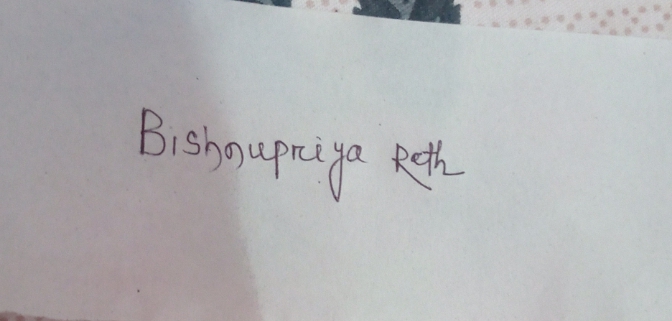 Bishnupriya Rath